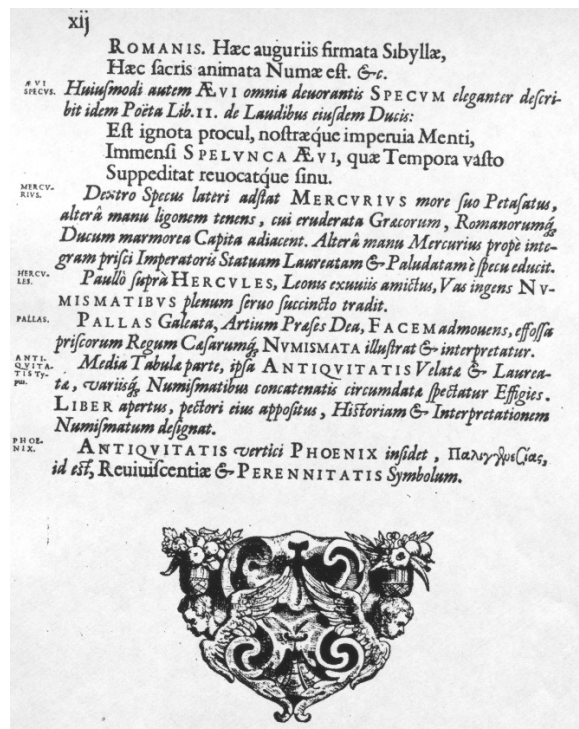 xij
ROMANIS. Hæc auguriis firmata Sibyllæ,
Hæc sacris animata Numæ est. &c.
ÆVI
SPECVS.
Huiusmodi autem ÆVI omnia deuorantis SPECVM eleganter descri-
bit idem Poëta Lib. II. de Laudibus eiusdem Ducis:
Est ignota procul, nostræque imperuia Menti,
Immensi SPELVNCA ÆVI, quæ Tempora vasto
Suppeditat reuocatque sinu.
MERCV-
RIVS.
Dextro Specus lateri adstat MERCVRIVS more suo Petasatus,
alterâ manu ligonem tenens, cui eruderata Græcorum, Romanorumq́;
Ducum marmorea Capita adiacent. Alterâ manu Mercurius propè inte-
gram prisci Imperatoris Statuam Laureatam & Paludatam è specu educit.
HERCV-
LES.
Paullò suprà HERCVLES, Leonis exuuiis amictus, Vas ingens NV-
MISMATIBVS plenum seruo succincto tradit.
PALLAS.
PALLAS Galeata, Artium Præses Dea, FACEM admouens, effossa
priscorum Regum Cæsarumq́; NVMISMATA illustrat & interpretatur.
ANTI-
QVITA-
TIS Ty-
pus.
Media Tabulæ parte, ipsa ANTIQVITATIS Velatæ & Laurea-
tæ, variisq́; Numismatibus concatenatis circumdatæ spectatur Effigies.
LIBER apertus, pectori eius appositus, Historiam & Interpretationem
Numismatum designat.
PHOE-
NIX.
ANTIQVITATIS vertici PHOENIX insidet, Παλιγγενεσίας,
id est, Reuiuiscentiæ & PERENNITATIS Symbolum.